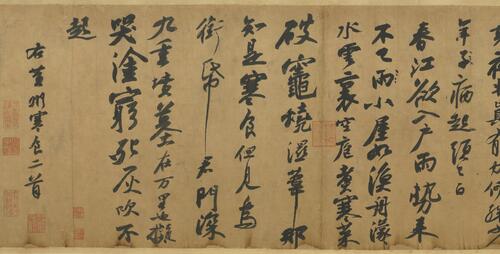 年子病起須已白
春江欲入戶雨勢來
不已雨小屋如漁舟濛〻
水雲裏空庖煮寒菜
破竈燒濕葦那
知是寒食但見烏
銜帋君門深
九重墳墓在万里也擬
哭塗窮死灰吹不
起
右黃州寒食二首